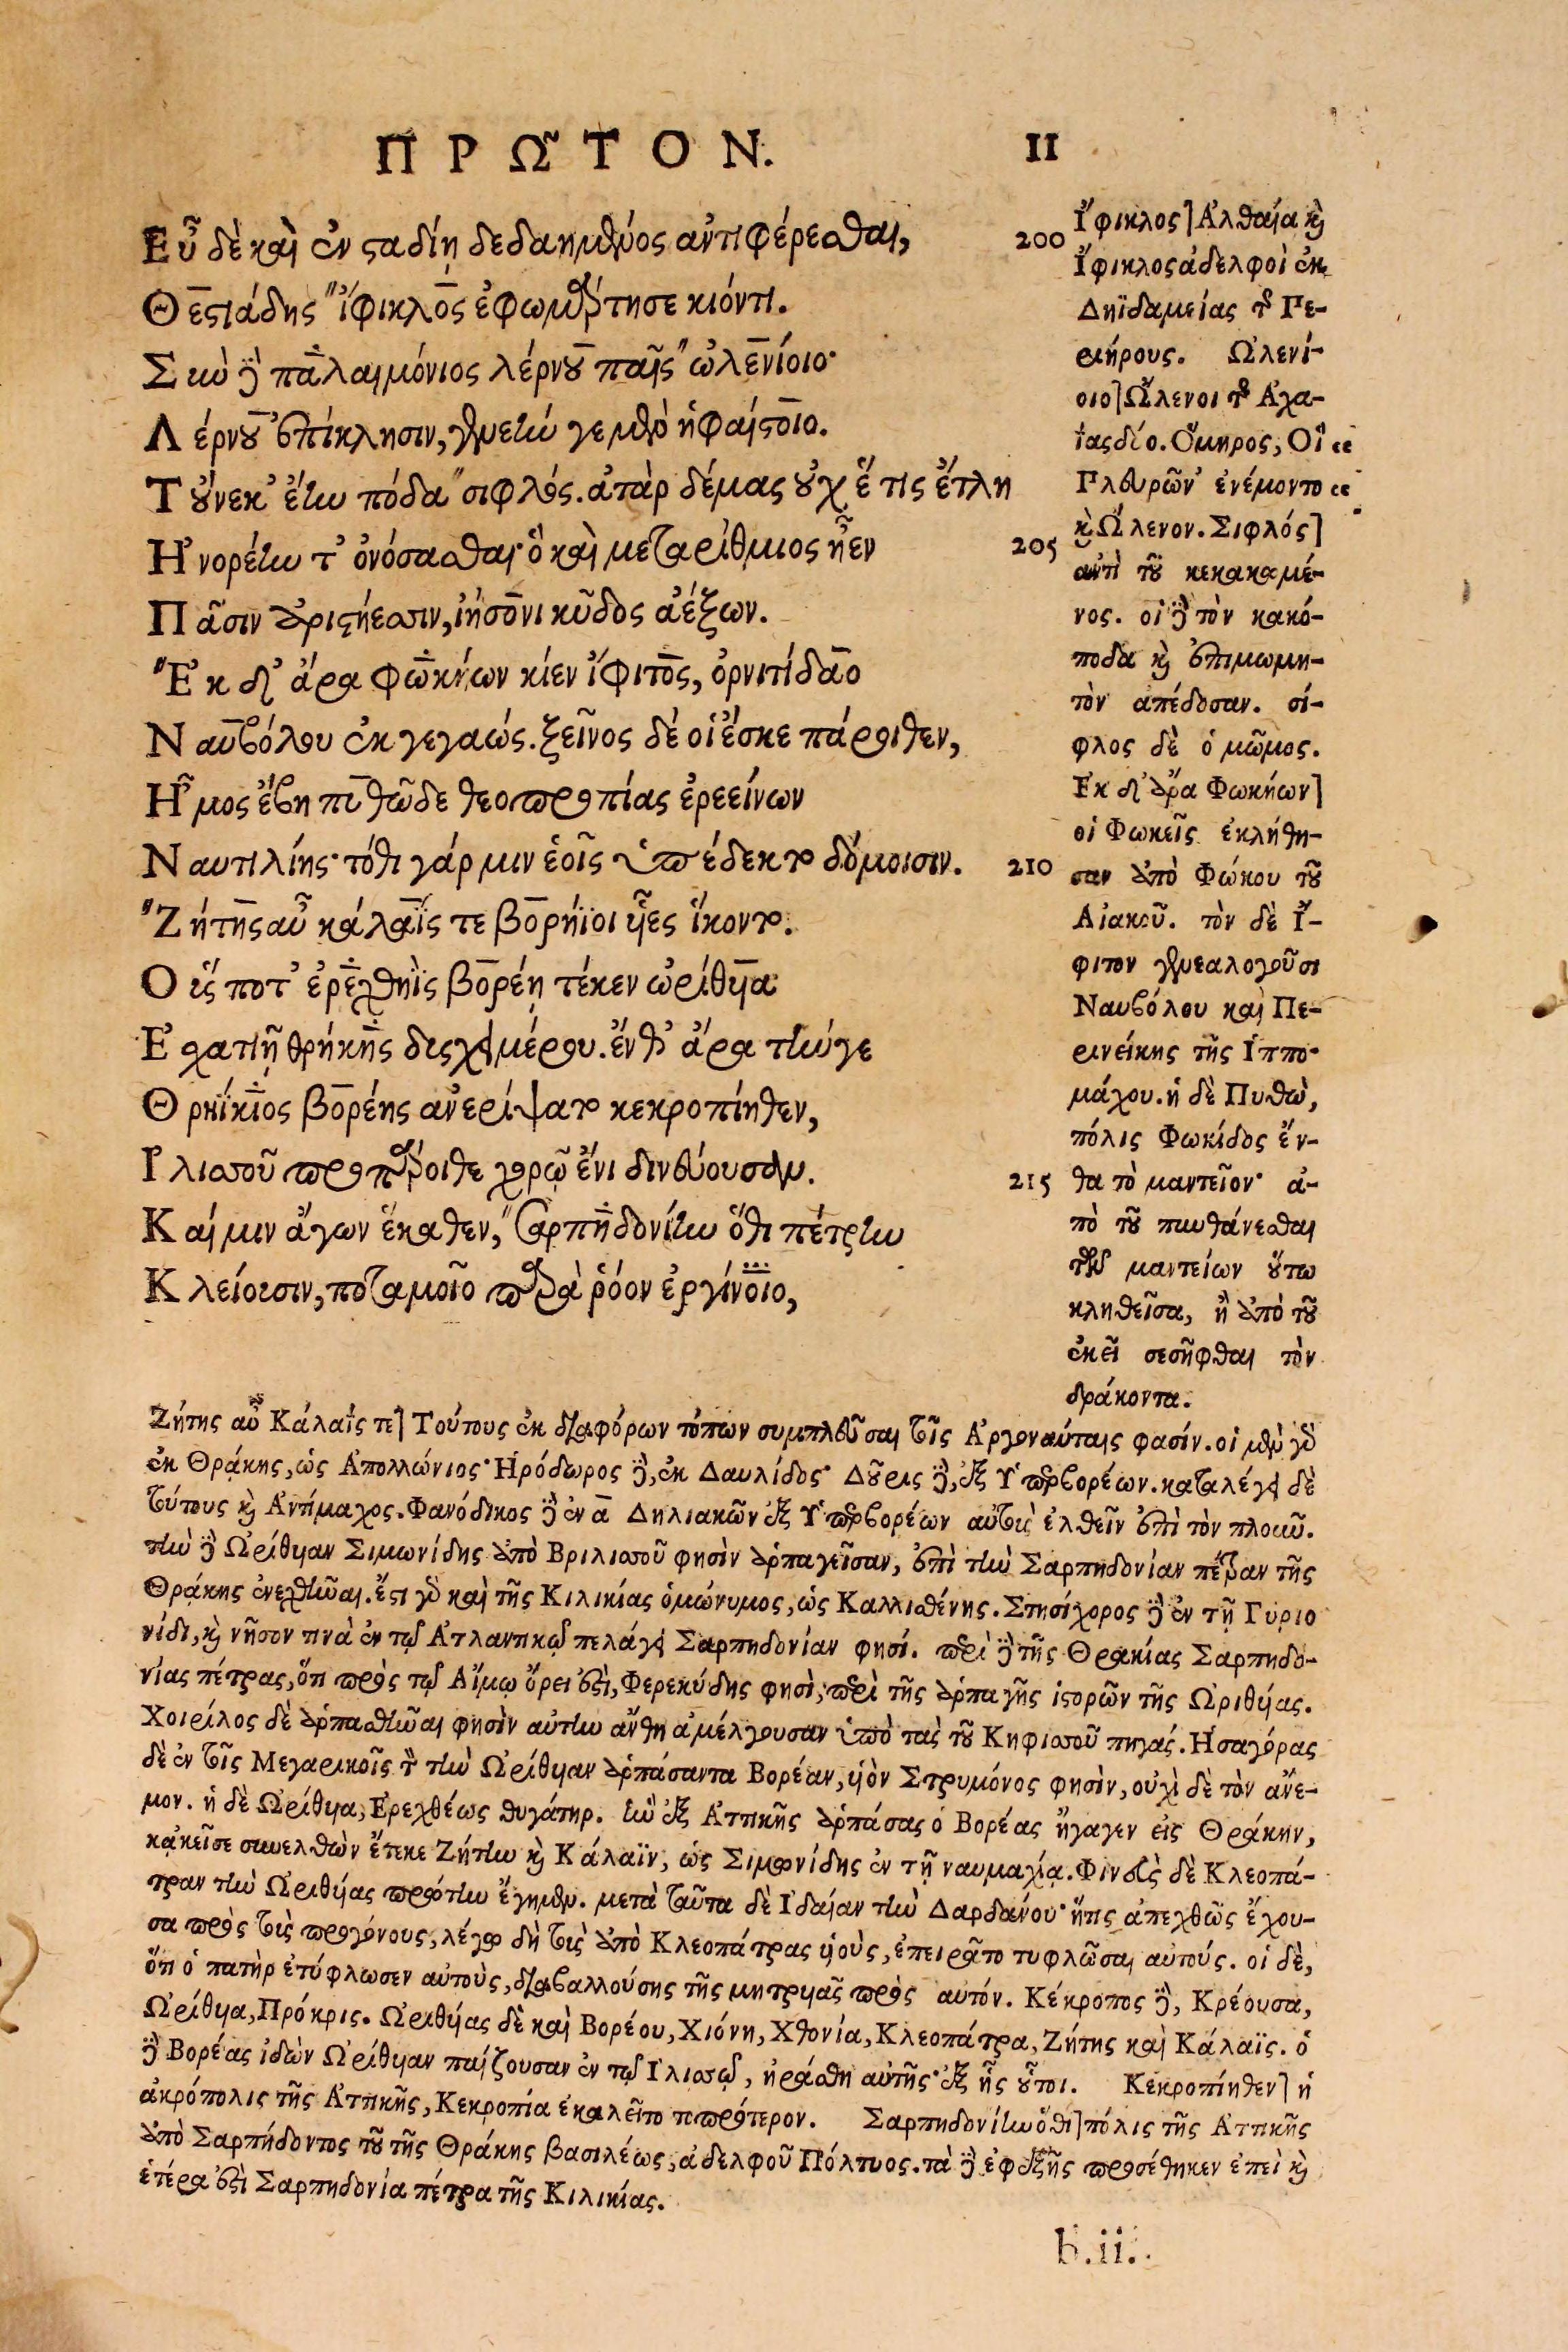 ΠΡΩ͂ΤΟΝ.
11
Εὖ δὲ καὶ ἐν ςαδίῃ δεδαημένος ἀντιφέρεσθαι,
200
Θεςιάδης ἴφικλος ἐφωμάρτησε κιόντι.
Σὺν δὲ παλαιμόνιος λέρνου παῖς ὠλενίοιο·
Λέρνου ἐπίκλησιν, γενεήν γε μὲν ἡφαίςοιο.
Τούνεκ' ἔην πόδα σιφλός. ἀτὰρ δέμας οὐχ ἕ τις ἔτλη
Ἠνορέην τ' ὀνόσασθαι· ὃ καὶ μεταρίθμιος ἦεν
205
Πᾶσιν ἀριςήεσσιν, ἰήσονι κῦδος ἀέξων.
Ἐκ δ' ἄρα φωκήων κίεν ἴφιτος, ὀρνιτίδαο
Ναυβόλου ἐκ γεγαώς. ξεῖνος δέ οἱ ἔσκε πάροιθεν,
Ἦμος ἔβη πυθῶδε θεοπροπίας ἐρεείνων
Ναυτιλίης· τόθι γάρ μιν ἑοῖς ὑπέδεκτο δόμοισιν.
210
Ζήτης αὖ κάλαΐς τε βορήϊοι υἷες ἵκοντο.
Οὕς ποτ' ἐρεχθηῒς βορέῃ τέκεν ὠρίθυια
Ἐσχατιῇ θρήκης δυσχειμέρου. ἔνθ' ἄρα τήνγε
Θρηΐκιος βορέης ἀνερίψατο κεκροπίηθεν,
Ἰλισσοῦ προπάροιθε χορῷ ἔνι δινεύουσαν.
215
Καί μιν ἄγων ἕκαθεν, Σαρπηδονίην ὅθι πέτρην
Κλείουσιν, ποταμοῖο παρὰ ῥόον ἐργίνοιο,
Ἴφικλος] Ἀλθαία καὶ
Ἴφικλος ἀδελφοὶ ἐκ
Δηϊδαμείας τῆς Πε-
ριήρους. Ὠλενί-
οιο] Ὤλενοι τῆς Ἀχα-
ΐας δύο. Ὅμηρος, Οἳ "
Πλευρῶν' ἐνέμοντο "
καὶ Ὤλενον. Σιφλός]
ἀντὶ τοῦ κεκακωμέ-
νος. οἱ δὲ τὸν κακό-
ποδα καὶ ἐπιμωμη-
τὸν ἀπέδοσαν. σί-
φλος δὲ ὁ μῶμος.
Ἐκ δ' ἄρα Φωκήων]
οἱ Φωκεῖς ἐκλήθη-
σαν ἀπὸ Φώκου τοῦ
Αἰακοῦ. τὸν δὲ Ἴ-
φιτον γενεαλογοῦσι
Ναυβόλου καὶ Πε-
ρινείκης τῆς Ἱππο-
μάχου. ἡ δὲ Πυθὼ,
πόλις Φωκίδος ἔν-
θα τὸ μαντεῖον· ἀ-
πὸ τοῦ πυνθάνεσθαι
τῶν μαντείων οὕτω
κληθεῖσα, ἢ ἀπὸ τοῦ
ἐκεῖ σεσῆφθαι τὸν
δράκοντα.
Ζήτης αὖ Κάλαΐς τε] Τούτους ἐκ διαφόρων τόπων συμπλεῦσαι τοῖς Ἀργοναύταις φασίν. οἱ μὲν γὰρ
ἐκ Θράκης, ὡς Ἀπολλώνιος· Ἡρόδωρος δὲ, ἐκ Δαυλίδος· Δοῦρις δὲ, ἐξ Ὑπερβορέων. καταλέγει δὲ
τούτους καὶ Ἀντίμαχος. Φανόδικος δὲ ἐν α Δηλιακῶν ἐξ Ὑπερβορέων αὐτοὺς ἐλθεῖν ἐπὶ τὸν πλοῦν.
τὴν δὲ Ὠρίθυιαν Σιμωνίδης ἀπὸ Βριλισσοῦ φησὶν ἁρπαγεῖσαν, ἐπὶ τὴν Σαρπηδονίαν πέτραν τῆς
Θράκης ἐνεχθῆναι. ἔςι γὰρ καὶ τῆς Κιλικίας ὁμώνυμος, ὡς Καλλισθένης. Στησίχορος δὲ ἐν τῇ Γυριο
νίδι, καὶ νῆσον τινὰ ἐν τῷ Ἀτλαντικῷ πελάγει Σαρπηδονίαν φησί. περὶ δὲ τῆς Θρακίας Σαρπηδο-
νίας πέτρας, ὅτι πρὸς τῷ Αἵμῳ ὄρει ἐςὶ, Φερεκύδης φησὶ, περὶ τῆς ἁρπαγῆς ἱςορῶν τῆς Ὠριθυίας.
Χοιρίλος δὲ ἁρπασθῆναι φησὶν αὐτὴν ἄνθη ἀμέλγουσαν ὑπὸ τὰς τοῦ Κηφισσοῦ πηγάς. Ἡσαγόρας
δὲ ἐν τοῖς Μεγαρικοῖς τὸν τὴν Ὠρίθυιαν ἁρπάσαντα Βορέαν, υἱὸν Στρυμόνος φησὶν, οὐχὶ δὲ τὸν ἄνε-
μον. ἡ δὲ Ὠρίθυια, Ἐρεχθέως θυγάτηρ. ἣν ἐξ Ἀττικῆς ἁρπάσας ὁ Βορέας ἤγαγεν εἰς Θράκην,
κἀκεῖσε συνελθὼν ἔτεκε Ζήτην καὶ Κάλαϊν, ὡς Σιμωνίδης ἐν τῇ ναυμαχίᾳ. Φινεὺς δὲ Κλεοπά-
τραν τὴν Ὠριθυίας πρώτην ἔγημεν. μετὰ ταῦτα δὲ Ἰδαίαν τὴν Δαρδάνου· ἥτις ἀπεχθῶς ἔχου-
σα πρὸς τοὺς προγόνους, λέγω δὴ τοὺς ἀπὸ Κλεοπάτρας υἱοὺς, ἐπειρᾶτο τυφλῶσαι αὐτούς. οἱ δὲ,
ὅτι ὁ πατὴρ ἐτύφλωσεν αὐτοὺς, διαβαλλούσης τῆς μητρυιᾶς πρὸς αὐτόν. Κέκροπος δὲ, Κρέουσα,
Ὠρίθυια, Πρόκρις. Ὠριθυίας δὲ καὶ Βορέου, Χιόνη, Χθονία, Κλεοπάτρα, Ζήτης καὶ Κάλαϊς. ὁ
δὲ Βορέας ἰδὼν Ὠρίθυιαν παίζουσαν ἐν τῷ Ἰλισσῷ, ἠράσθη αὐτῆς· ἐξ ἧς οὗτοι. Κεκροπίηθεν] ἡ
ἀκρόπολις τῆς Ἀττικῆς, Κεκροπία ἐκαλεῖτο τοπρότερον. Σαρπηδονίην ὅθι] πόλις τῆς Ἀττικῆς
ἀπὸ Σαρπήδοντος τοῦ τῆς Θράκης βασιλέως, ἀδελφοῦ Πόλτυος. τὰ δὲ ἐφεξῆς προσέθηκεν ἐπεὶ καὶ
ἑτέρα ἐςὶ Σαρπηδονία πέτρα τῆς Κιλικίας.
b.ii.